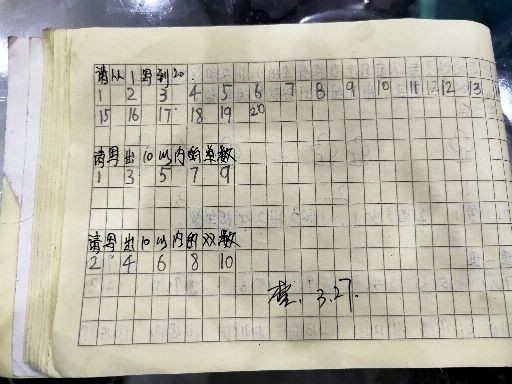 请从1写到20.
1 2 3 4 5 6 7 8 9 10 11 12 12 13
15 16 17 18 19 20
请写出10以内的单数
1 3 5 7 9
请写出10以内的双数
2 4 6 8 10
查. 3.27.